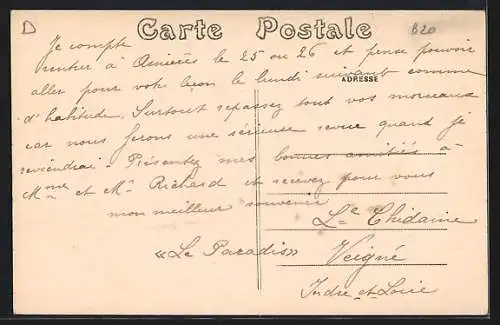 D
Carte Postale
B20
Je compte
rentrer à Asnières le 25 ou 26 et pense pouvoir
aller pour votre leçon le lundi suivant comme
ADRESSE
d'habitude. Surtout repassez tout vos morceaux
car nous ferons une sérieuse revue quand je
reviendrai. Présentez mes bonnes amitiés à
Mme et Mr Richard et recevez pour vous
mon meilleur souvenir
L.
«Le Paradis» Veigné
Indre et Loire